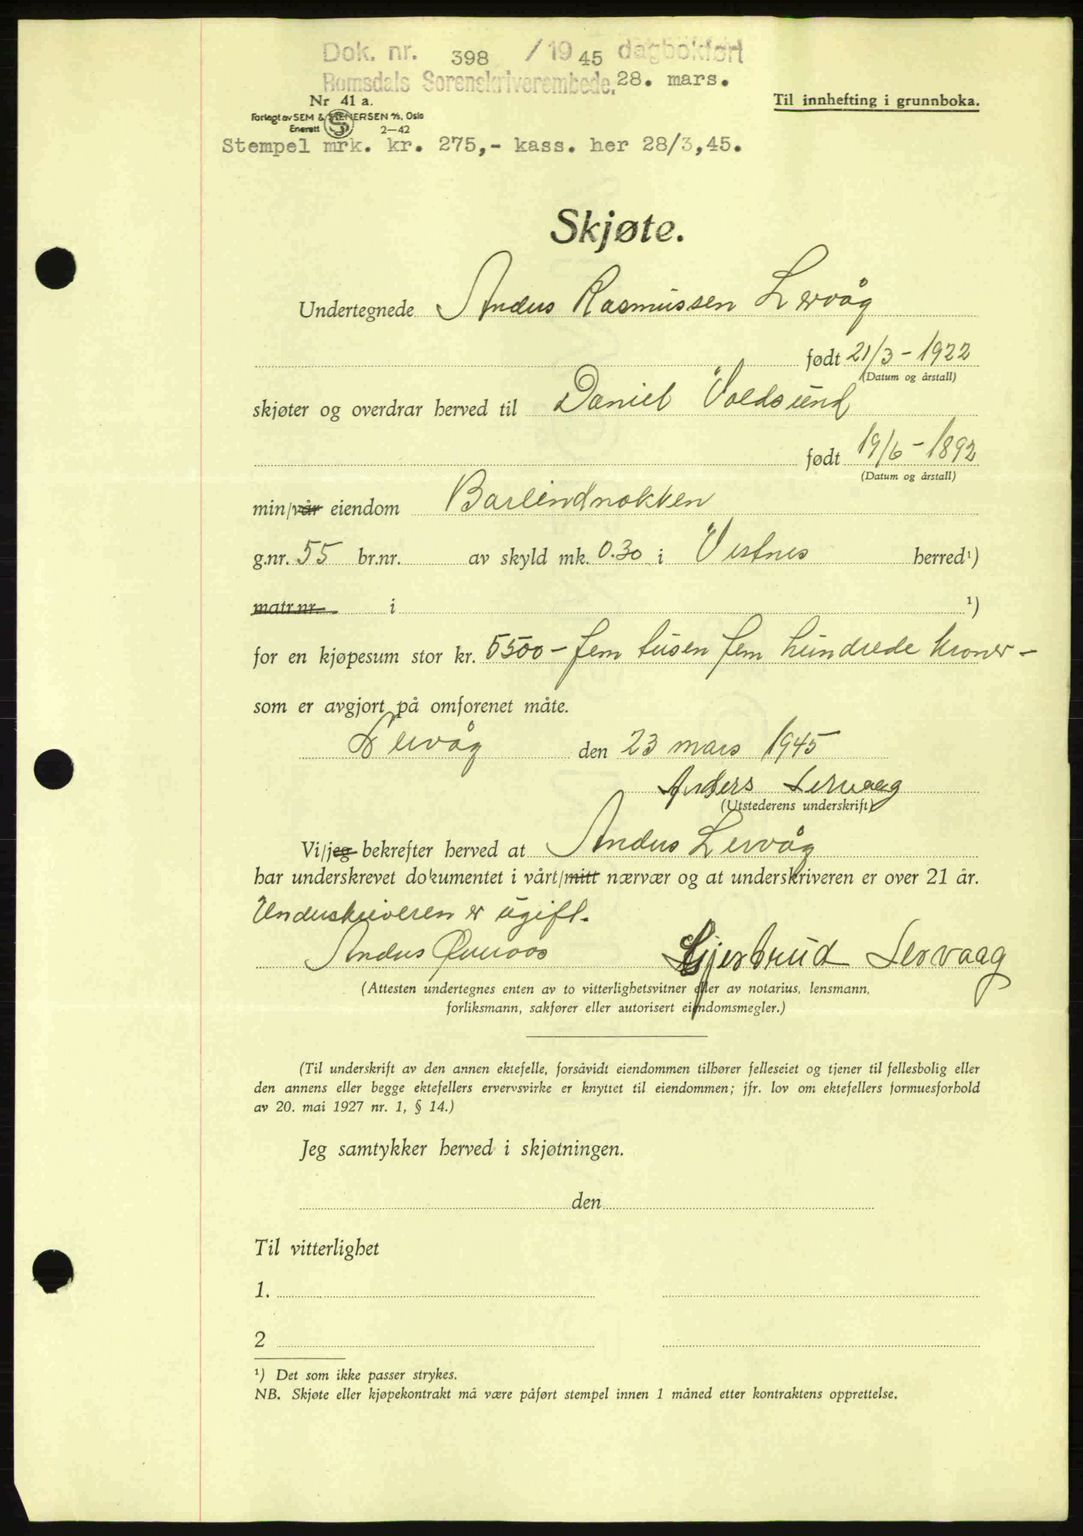 Dok. nr. 398 / 19 45 dagbokført
Romsdals Sorenskriverembede, 28. mars.
Nr 41 a.
Til innhefting i grunnboka.
Forlagt av SEM & STENERSEN A/S, Oslo
Enerett 2-42
Stempel mrk. kr. 275,- kass. her 28/3,45.
Skjøte.
Undertegnede Anders Rasmussen Lervåg
født 21/3 - 1922
(Datum og årstall)
skjøter og overdrar herved til Daniel Voldsund
født 19/6 - 1892
(Datum og årstall)
min/vår eiendom Barlindnokken
g.nr. 55 br.nr. av skyld mk. 0.30 i Vestnes herred¹)
matr.nr. i ¹)
for en kjøpesum stor kr. 5500 - fem tusen fem hundrede kroner -
som er avgjort på omforenet måte.
Lervåg den 23 mars 1945
Anders Lervaag
(Utstederens underskrift)
Vi/jeg bekrefter herved at Anders Lervåg
har underskrevet dokumentet i vårt/mitt nærvær og at underskriveren er over 21 år.
Underskriveren er ugift.
Anders Gjertrud Lervaag
(Attesten undertegnes enten av to vitterlighetsvitner eller av notarius, lensmann,
forliksmann, sakfører eller autorisert eiendomsmegler.)
(Til underskrift av den annen ektefelle, forsåvidt eiendommen tilhører felleseiet og tjener til fellesbolig eller
den annens eller begge ektefellers ervervsvirke er knyttet til eiendommen; jfr. lov om ektefellers formuesforhold
av 20. mai 1927 nr. 1, § 14.)
Jeg samtykker herved i skjøtningen.
den
Til vitterlighet
1.
2
¹) Det som ikke passer strykes.
NB. Skjøte eller kjøpekontrakt må være påført stempel innen 1 måned etter kontraktens opprettelse.